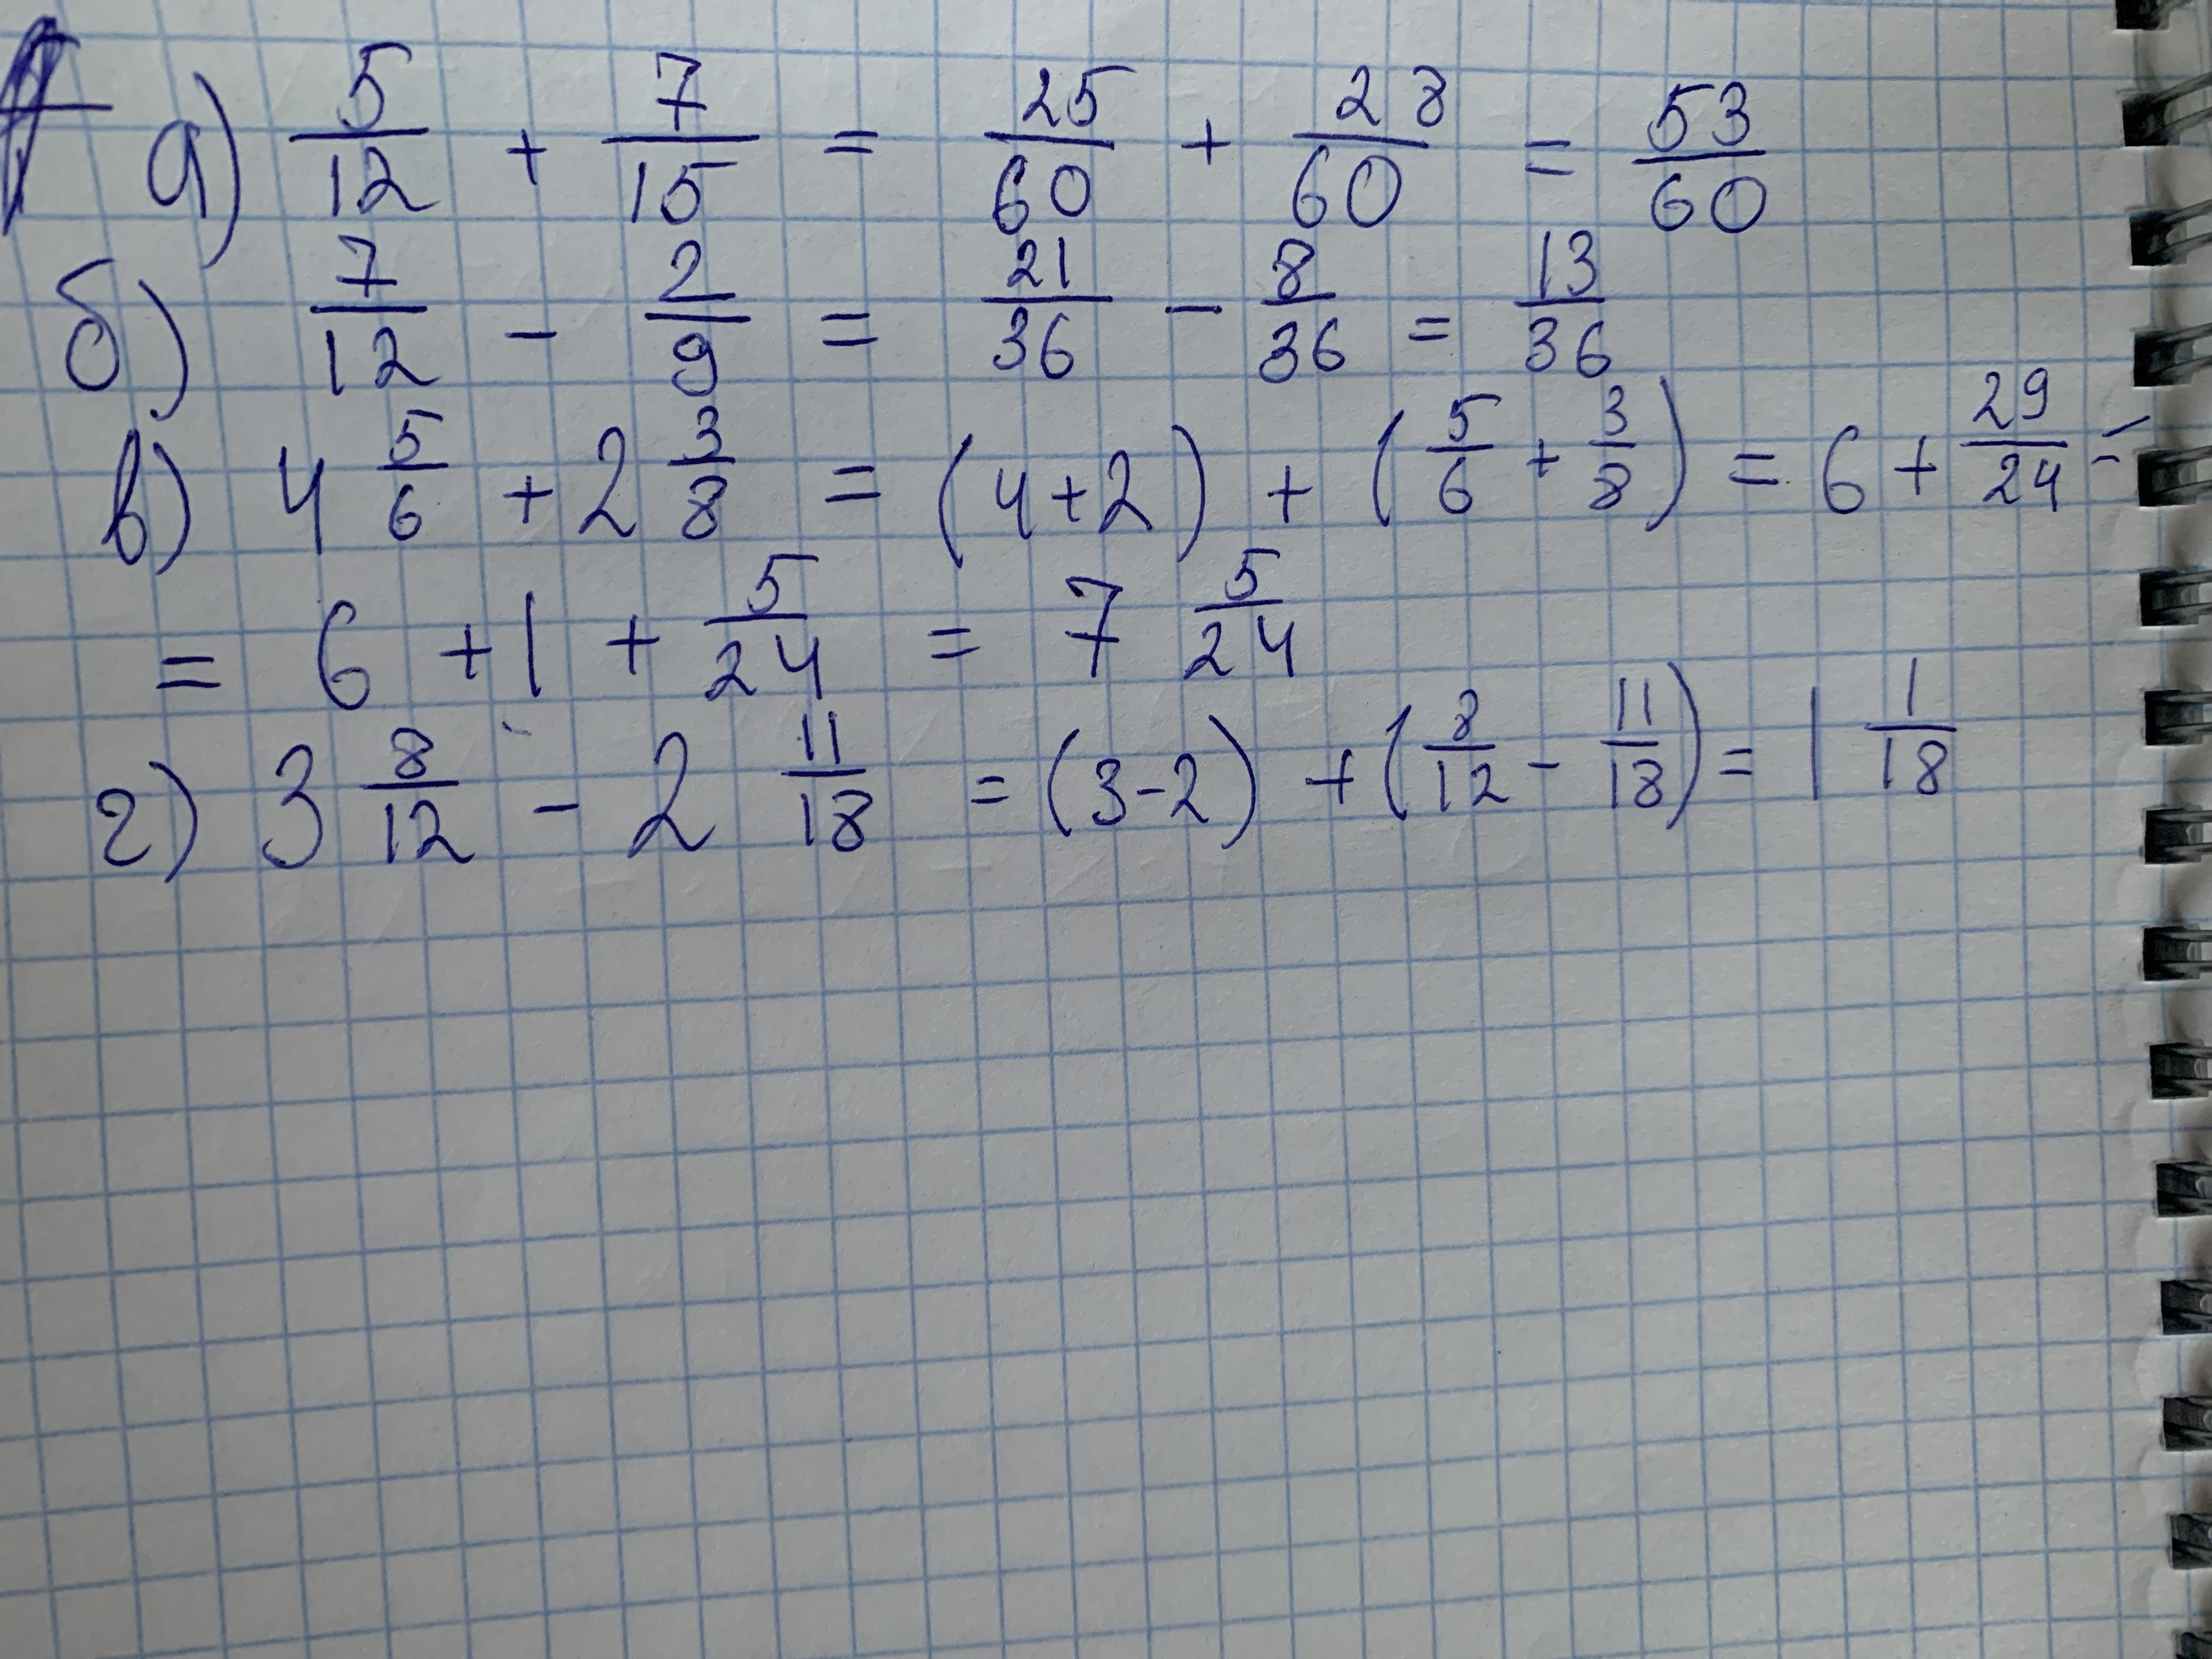 а) 5/12 + 7/15 = 25/60 + 28/60 = 53/60
б) 7/12 - 2/9 = 21/36 - 8/36 = 13/36
в) 4 5/6 + 2 3/8 = (4+2) + (5/6 + 3/8) = 6 + 29/24 =
= 6 + 1 + 5/24 = 7 5/24
г) 3 8/12 - 2 11/18 = (3-2) + (8/12 - 11/18) = 1 1/18